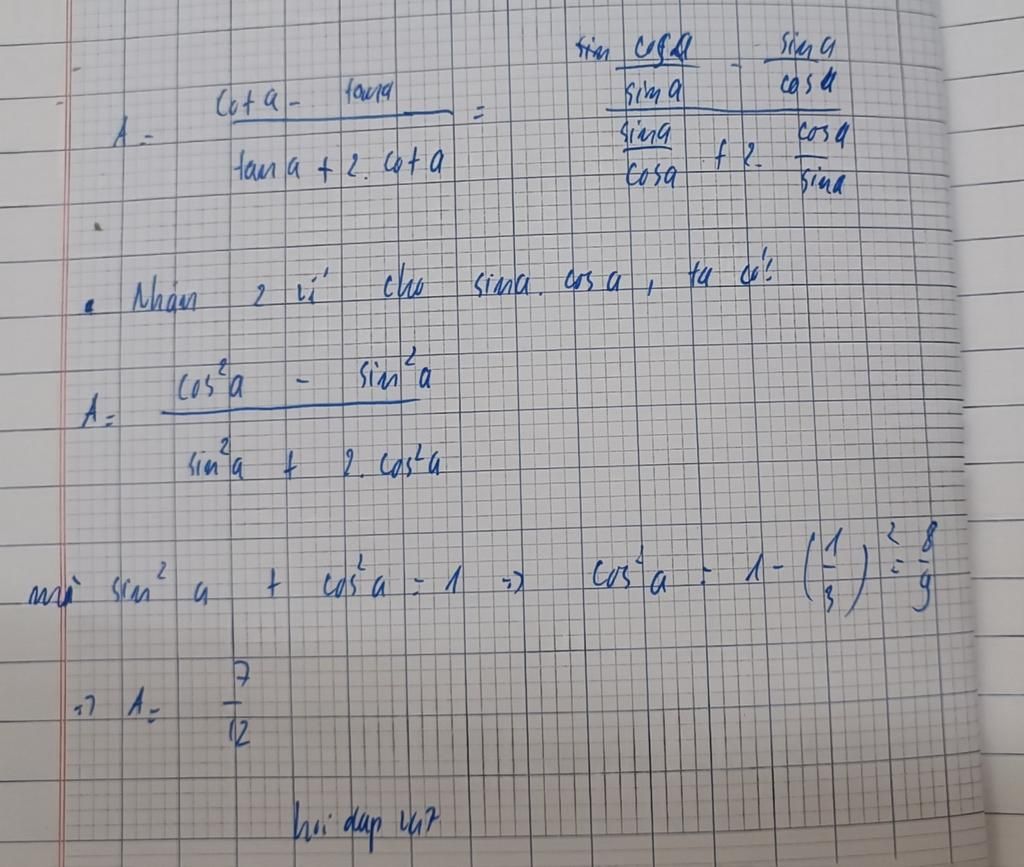 A = (cot a - tan a) / (tan a + 2. cot a) = (cos a / sin a - sin a / cos a) / (sin a / cos a + 2. cos a / sin a)
• Nhân 2 vế cho sin a. cos a, ta có:
A = (cos²a - sin²a) / (sin²a + 2. cos²a)
mà sin² a + cos²a = 1 => cos²a = 1 - (1/3)² = 8/9
=> A = 7/12
hoi dap 247